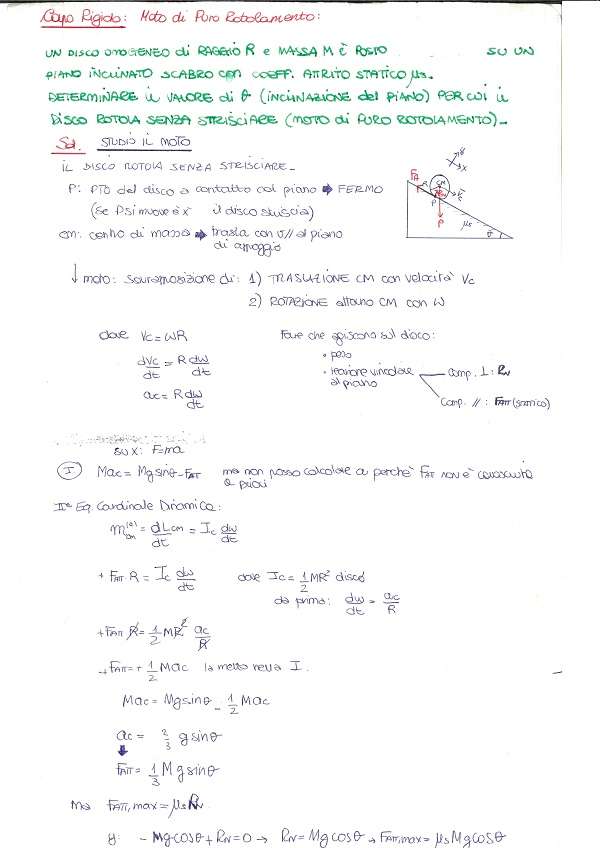 Corpo Rigido: Moto di Puro Rotolamento:
UN DISCO OMOGENEO di RAGGIO R e MASSA M È POSTO SU UN
PIANO INCLINATO SCABRO con COEFF. ATTRITO STATICO μs.
DETERMINARE il VALORE di θ (INCLINAZIONE del PIANO) PER CUI il
DISCO ROTOLA SENZA STRISCIARE (MOTO di PURO ROTOLAMENTO)_
Sol. STUDIO IL MOTO
IL DISCO ROTOLA SENZA STRISCIARE_
P: PTO del disco a contatto col piano → FERMO
(Se P si muove è x il disco striscia)
cm: centro di massa → trasla con v // al piano
di appoggio
y
x
FA
R
CM
Vc
P
P
μs
θ
↓ moto: sovrapposizione di: 1) TRASLAZIONE CM con velocità Vc
2) ROTAZIONE attorno CM con ω
dove Vc = ωR
dVc/dt = R dω/dt
ac = R dω/dt
Forze che agiscono sul disco:
• peso
• reazione vincolare
al piano
comp. ⊥: RN
Comp. //: FATT (statico)
su x: F=ma
I Mac = Mg sinθ - FATT ma non posso calcolare a perchè FATT non è conosciuta
a priori
IIª Eq. Cardinale Dinamica:
m(e)cm = dLcm/dt = Ic dω/dt
+ FATT · R = Ic dω/dt dove Ic = 1/2 MR² disco
da prima: dω/dt = ac/R
+ FATT R = 1/2 MR² ac/R
→ FATT = + 1/2 Mac la metto nella I.
Mac = Mg sinθ - 1/2 Mac
ac = 2/3 g sinθ
↓
FATT = 1/3 M g sinθ
Ma FATT,max = μs RN
y: - Mg cosθ + RN = 0 → RN = Mg cosθ → FATT,max = μs Mg cosθ